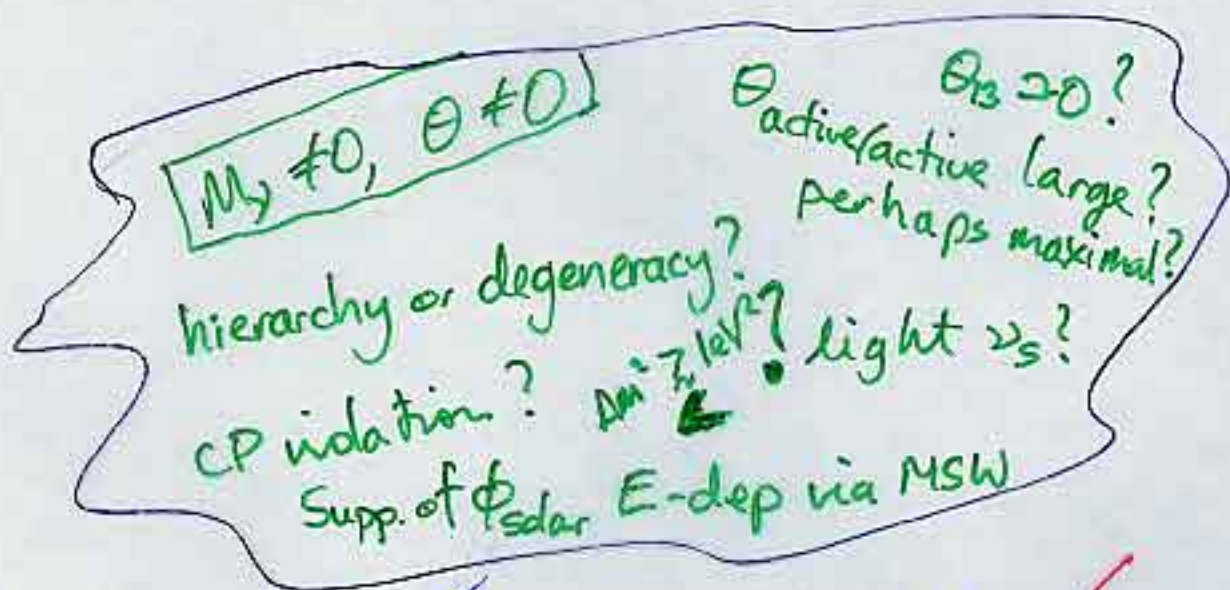 Mν ≠0, θ ≠0
θ13 ≃0?
θactive/active large?
perhaps maximal?
hierarchy or degeneracy?
CP violation? Δm² ≳ 1eV²? light νs?
Supp. of ϕsolar E-dep via MSW